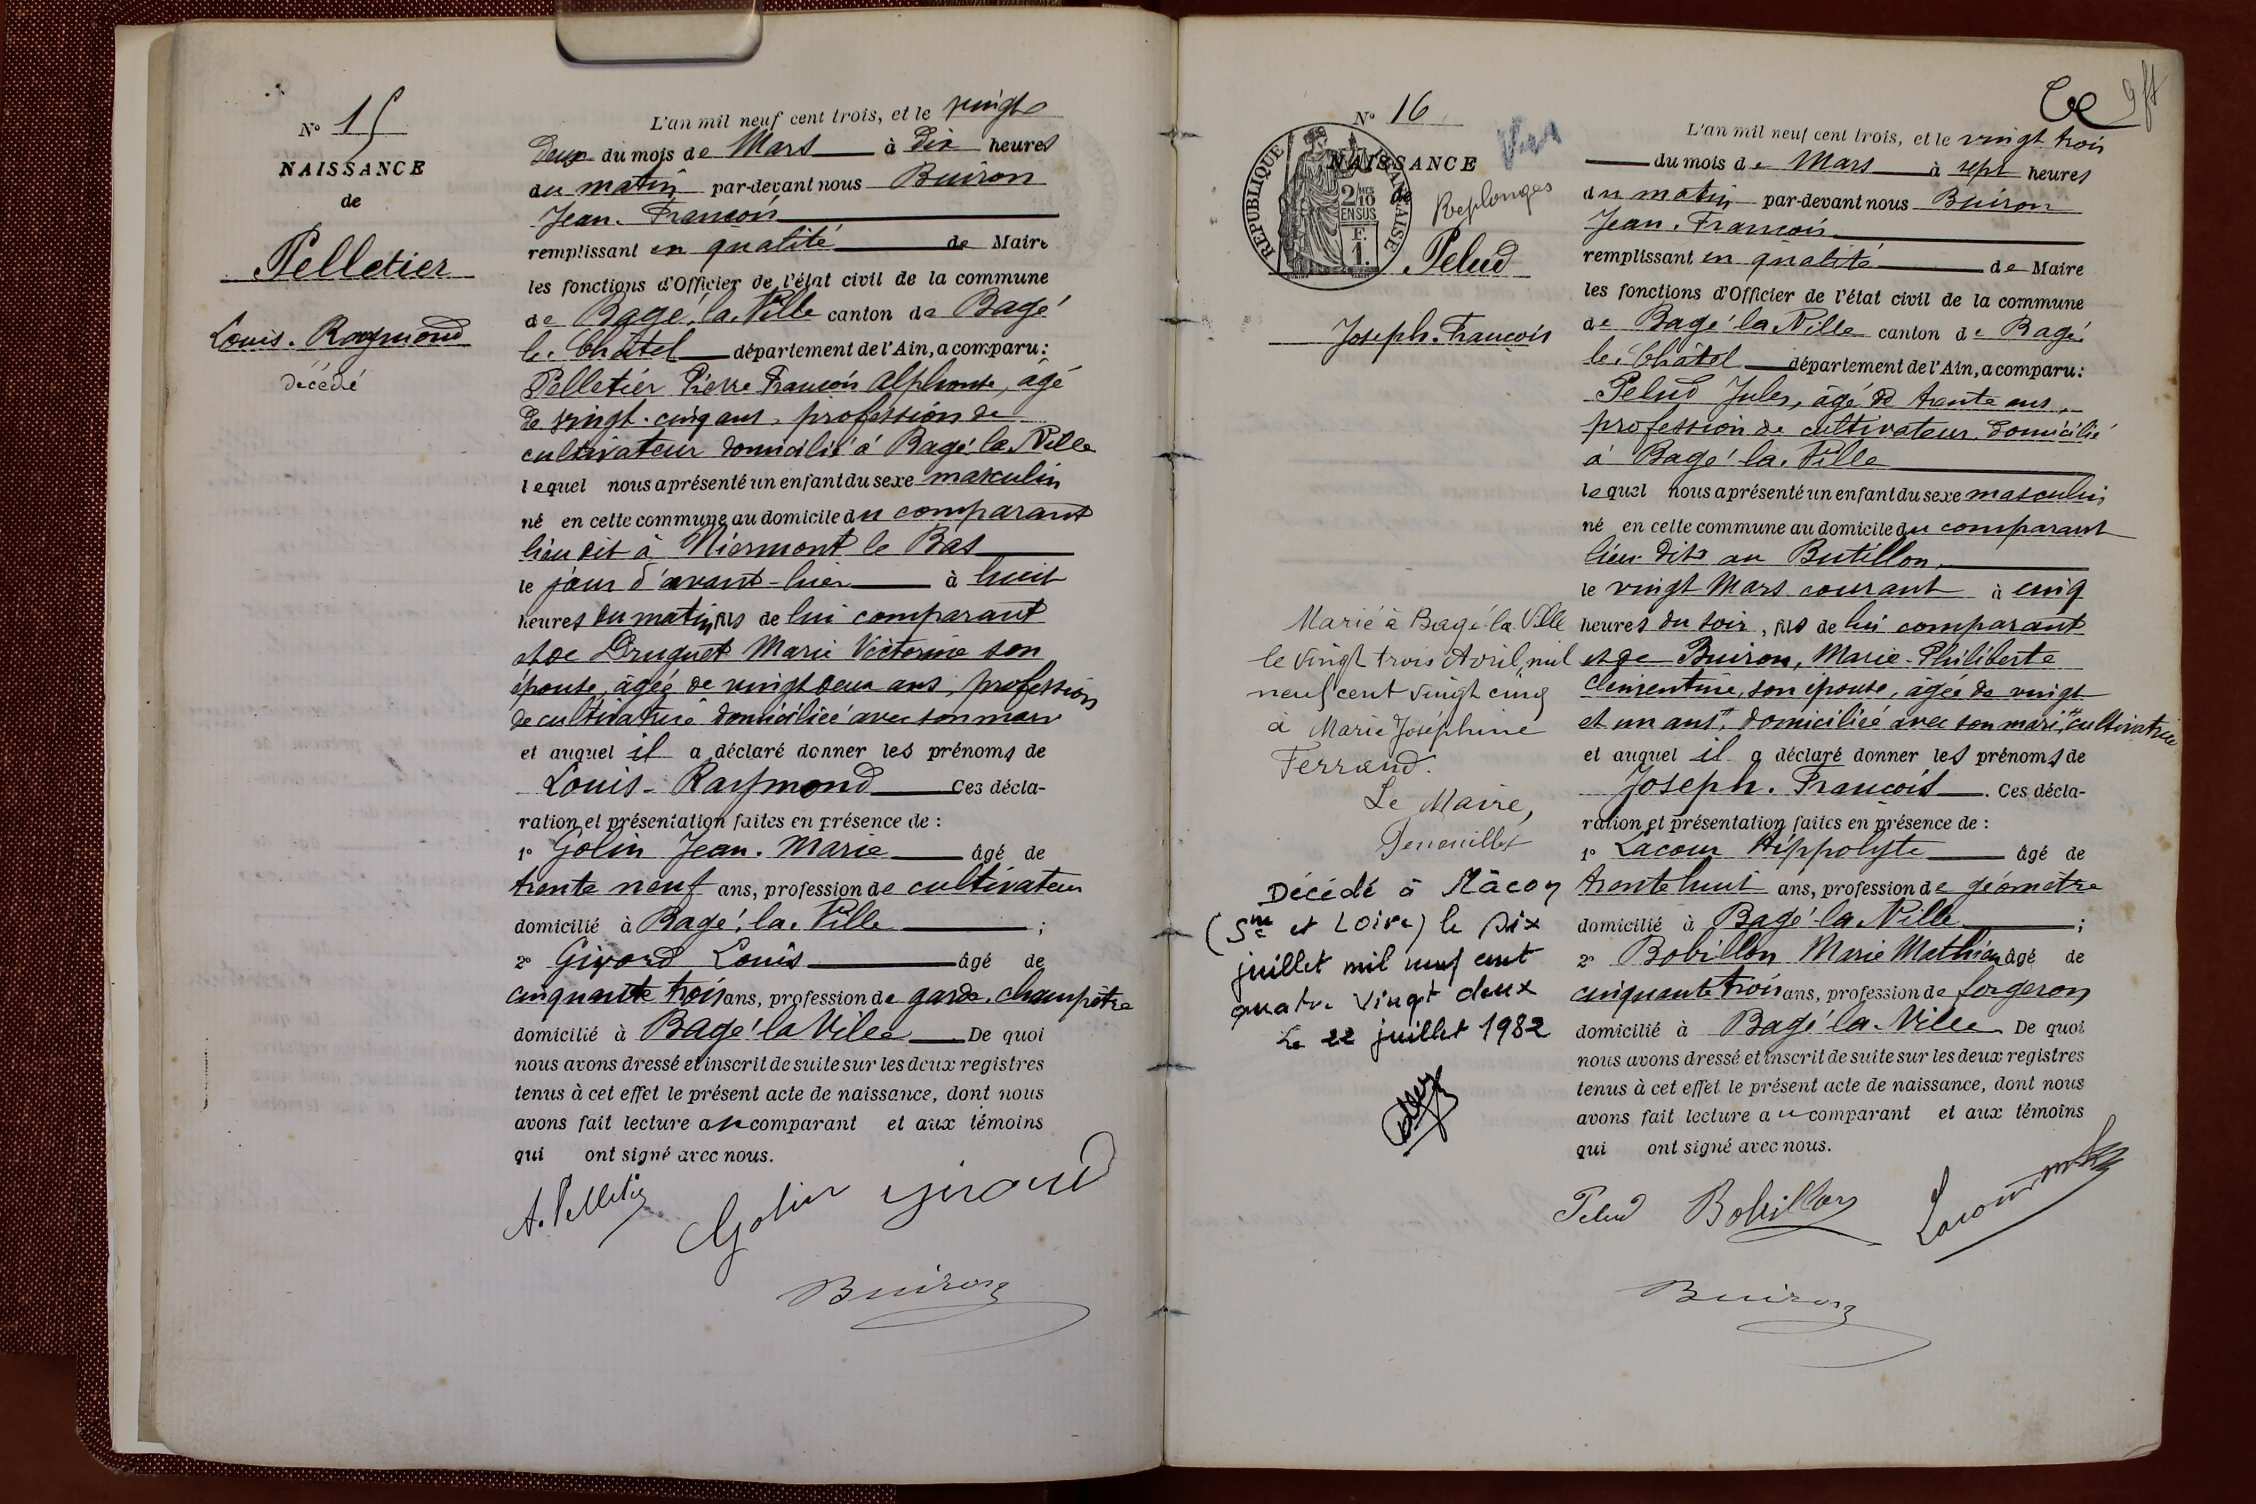 N° 15
NAISSANCE
de
Pelletier
Louis. Raymond
décédé
L'an mil neuf cent trois, et le vingt
deux du mois de Mars à dix heures
du matin par-devant nous Buiron
Jean. François
remplissant en qualité de Maire
les fonctions d'Officier de l'état civil de la commune
de Bagé la Ville canton de Bagé
le Châtel département de l'Ain, a comparu :
Pelletier Pierre François Alphonse, agé
de vingt-cinq ans, profession de
cultivateur domicilié à Bagé la Ville
lequel nous a présenté un enfant du sexe masculin
né en cette commune au domicile du comparant
lieu dit à Niermont le Bas
le jour d'avant-hier à huit
heures du matin fils de lui comparant
et de Druguet Marie Victorine son
épouse, agée de vingt deux ans, profession
de cultivatrice domiciliée avec son mari
et auquel il a déclaré donner les prénoms de
Louis-Raymond Ces décla-
ration et présentation faites en présence de :
1° Golin Jean. Marie âgé de
trente neuf ans, profession de cultivateur
domicilié à Bagé la Ville ;
2° Girord Louis âgé de
cinquante trois ans, profession de garde. champêtre
domicilié à Bagé la Ville De quoi
nous avons dressé et inscrit de suite sur les deux registres
tenus à cet effet le présent acte de naissance, dont nous
avons fait lecture au comparant et aux témoins
qui ont signé avec nous.
A. Pelletier Golin Girord
Buiron
N° 16
NAISSANCE
de
RÉPUBLIQUE FRANÇAISE
2/10 EN SUS
F. 1.
Replonges
Pelud
Joseph. François
Marié à Bagé-la-Ville
le vingt trois Avril mil
neuf cent vingt cinq
à Marie Joséphine
Ferrand.
Le Maire,
Décédé à Mâcon
(Sne et Loire) le six
juillet mil neuf cent
quatre vingt deux
Le 22 juillet 1982
L'an mil neuf cent trois, et le vingt trois
du mois de Mars à sept heures
du matin par-devant nous Buiron
Jean. François
remplissant en qualité de Maire
les fonctions d'Officier de l'état civil de la commune
de Bagé la Ville canton de Bagé
le Châtel département de l'Ain, a comparu :
Pelud Jules, âgé de trente ans,
profession de cultivateur, domicilié
à Bagé la Ville
lequel nous a présenté un enfant du sexe masculin
né en cette commune au domicile du comparant
lieu dit au Butillon
le vingt Mars courant à cinq
heures du soir, fils de lui comparant
et de Buiron, Marie-Philiberte
Clémentine, son épouse, âgée de vingt
et un ans, domiciliée avec son mari, cultivatrice
et auquel il a déclaré donner les prénoms de
Joseph. François. Ces décla-
ration et présentation faites en présence de :
1° Lacour Hippolyte âgé de
trente huit ans, profession de géomètre
domicilié à Bagé la Ville ;
2° Bobillon Marie Mathieu âgé de
cinquante trois ans, profession de forgeron
domicilié à Bagé la Ville De quoi
nous avons dressé et inscrit de suite sur les deux registres
tenus à cet effet le présent acte de naissance, dont nous
avons fait lecture au comparant et aux témoins
qui ont signé avec nous.
Pelud Bobillon Lacour
Buiron